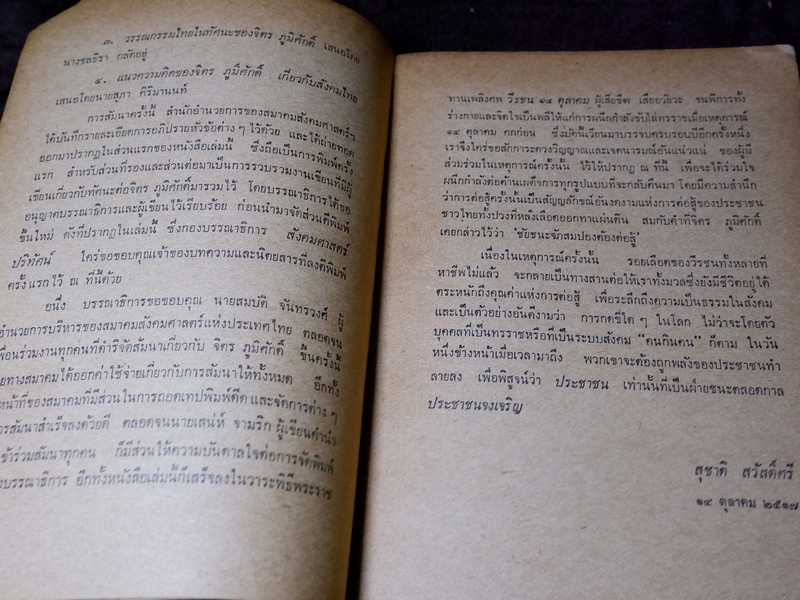 ๓. วรรณกรรมไทยในทัศนะของจิตร ภูมิศักดิ์ เสนอโดย
นางชลธิรา กลัดอยู่
๔. แนวความคิดของจิตร ภูมิศักดิ์ เกี่ยวกับสังคมไทย
เสนอโดยนายสุภา ศิริมานนท์
การสัมนาครั้งนี้ สำนักอำนวยการของสมาคมสังคมศาสตร์ฯ
ได้บันทึกรายละเอียดการอภิปรายหัวข้อต่างๆ ไว้ด้วย และได้ถ่ายทอด
ออกมาปรากฏในส่วนแรกของหนังสือเล่มนี้ ซึ่งถือเป็นการพิมพ์ครั้ง
แรก สำหรับส่วนที่รองและส่วนต่อมาเป็นการรวบรวมงานเขียนที่มีผู้
เขียนเกี่ยวกับทัศนะต่อจิตร ภูมิศักดิ์มารวมไว้ โดยบรรณาธิการได้ขอ
อนุญาตบรรณาธิการและผู้เขียนไว้เรียบร้อย ก่อนนำมาจัดตีพิมพ์
ขึ้นใหม่ ดังที่ปรากฏในเล่มนี้ ซึ่งกองบรรณาธิการ สังคมศาสตร์
ปริทัศน์ ใคร่ขอขอบคุณเจ้าของบทความและนิตยสารที่ลงตีพิมพ์
ครั้งแรกไว้ ณ ที่นี้ด้วย
อนึ่ง บรรณาธิการขอขอบคุณ นายสมบัติ จันทรวงศ์ ผู้
อำนวยการบริหารของสมาคมสังคมศาสตร์แห่งประเทศไทย ตลอดจน
เพื่อนร่วมงานทุกคนที่ดำริจัดสัมนาเกี่ยวกับ จิตร ภูมิศักดิ์ ขึ้นครั้งนี้
ยทางสมาคมได้ออกค่าใช้จ่ายเกี่ยวกับการสัมนาให้ทั้งหมด อีกทั้ง
หน้าที่ของสมาคมที่มีส่วนในการถอดเทปพิมพ์ดีด และจัดการต่างๆ
ารสัมนาสำเร็จลงด้วยดี ตลอดจนนายเสน่ห์ จามริก ผู้เขียนคำนำ
เข้าร่วมสัมนาทุกคน ก็มีส่วนให้ความบันดาลใจต่อการจัดพิมพ์
งบรรณาธิการ อีกทั้งหนังสือเล่มนี้ก็เสร็จลงในวาระพิธีพระราช
ทานเพลิงศพ วีรชน ๑๔ ตุลาคม ผู้เสียชีวิต เสียอวัยวะ จนพิการทั้ง
ร่างกายและจิตใจเป็นพลีให้แก่การผนึกกำลังขับไล่ทรราชเมื่อเหตุการณ์
๑๔ ตุลาคม ศกก่อน ซึ่งมัดนี้เวียนมาบรรจบครบรอบปีอีกครั้งหนึ่ง
เราจึงใคร่ขอสักการะดวงวิญญาณและเจตนารมณ์อันแน่วแน่ ของผู้มี
ส่วนร่วมในเหตุการณ์ครั้งนั้น ไว้ให้ปรากฏ ณ ที่นี้ เพื่อจะได้ร่วมใจ
ผนึกกำลังต่อต้านเผด็จการทุกรูปแบบที่จะกลับคืนมา โดยมีความสำนึก
ว่าการต่อสู้ครั้งนั้นเป็นสัญญลักษณ์อันงดงามแห่งการต่อสู้ของประชาชน
ชาวไทยทั้งปวงที่หลั่งเลือดออกทาแผ่นดิน สมกับคำที่จิตร ภูมิศักดิ์
เคยกล่าวไว้ว่า 'ชัยชนะจักสมปองต้องต่อสู้'
เนื่องในเหตุการณ์ครั้งนั้น รอยเลือดของวีรชนทั้งหลายที่
หาชีพไม่แล้ว จะกลายเป็นทางสานต่อให้เราทั้งมวลซึ่งยังมีชีวิตอยู่ได้
ตระหนักถึงคุณค่าแห่งการต่อสู้ เพื่อระลึกถึงความเป็นธรรมในสังคม
และเป็นตัวอย่างอันดีงามว่า การกดขี่ใดๆ ในโลก ไม่ว่าจะโดยตัว
บุคคลที่เป็นทรราชหรือที่เป็นระบบสังคม "คนกินคน" ก็ตาม ในวัน
หนึ่งข้างหน้าเมื่อเวลามาถึง พวกเขาจะต้องถูกพลังของประชาชนทำ
ลายลง เพื่อพิสูจน์ว่า ประชาชน เท่านั้นที่เป็นฝ่ายชนะตลอดกาล
ประชาชนจงเจริญ
สุชาติ สวัสดิ์ศรี
๑๔ ตุลาคม ๒๕๑๗